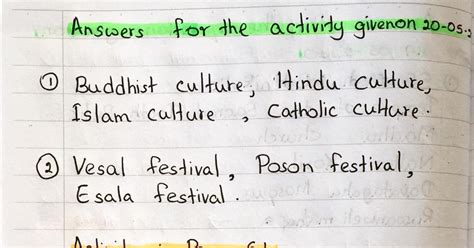 Answers for the activity givenon 20-05-
① Buddhist culture, Hindu culture,
Islam culture , Catholic culture.
② Vesal festival, Poson festival,
Esala festival.